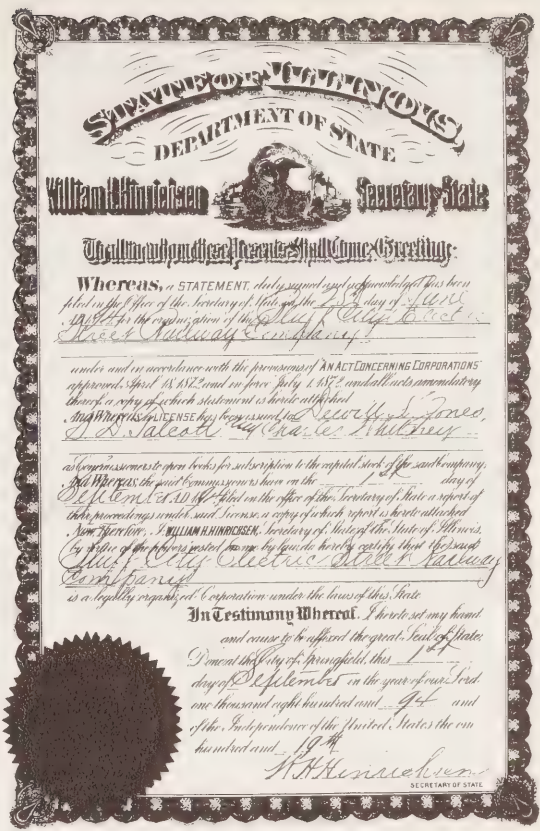 STATE OF ILLINOIS,
DEPARTMENT OF STATE
William H. Hinrichsen Secretary of State
To all to whom these Presents Shall Come, Greeting:
Whereas, a STATEMENT, duly signed and acknowledged has been
filed in the Office of the Secretary of State, on the day of June
1894 for the organization of the Bluff City Electric
Street Railway Company
under and in accordance with the provisions of "AN ACT CONCERNING CORPORATIONS"
approved April 18, 1872, and in force July 1, 1872, and all acts amendatory
thereof, a copy of which statement is hereto attached
And Whereas, a LICENSE has been issued to Dewitt L. Jones,
S. D. Talcott and Charles Whitney
as Commissioners to open books for subscription to the capital stock of the said company.
And Whereas, the said Commissioners have on the 1st day of
September 1894 filed in the office of the Secretary of State a report of
their proceedings under said License, a copy of which report is hereto attached
Now, Therefore, I, WILLIAM H. HINRICHSEN, Secretary of State of the State of Illinois,
by virtue of the powers vested in me by law, do hereby certify that the said
Bluff City Electric Street Railway
Company
is a legally organized Corporation under the laws of this State
In Testimony Whereof, I hereto set my hand
and cause to be affixed the great Seal of State.
Done at the City of Springfield, this 1st
day of September in the year of our Lord
one thousand eight hundred and 94 and
of the Independence of the United States the one
hundred and 19th
W H Hinrichsen
SECRETARY OF STATE